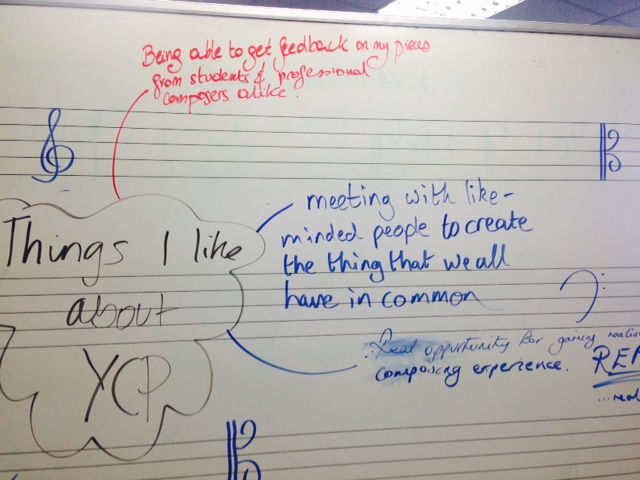 Being able to get feedback on my pieces
from students & professional
composers alike.
Things I like
about
YCP
meeting with like-
minded people to create
the thing that we all
have in common
Real opportunity for gaining
composing experience.